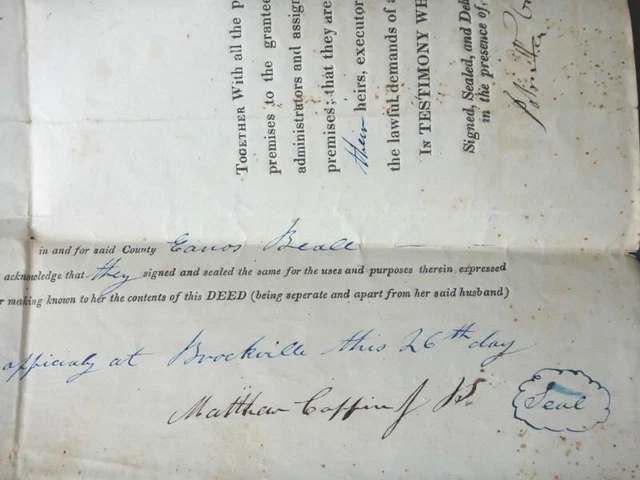 TOGETHER With all the p
premises to the grantee
administrators and assign
premises; that they are
their heirs, executor
the lawful demands of a
IN TESTIMONY WH
Signed, Sealed, and Del
in the presence of,
in and for said County Eanos Beall
acknowledge that they signed and sealed the same for the uses and purposes therein expressed
r making known to her the contents of this DEED (being seperate and apart from her said husband)
officialy at Brockville this 26th day
Matthew Coffin J Ps.
Seal